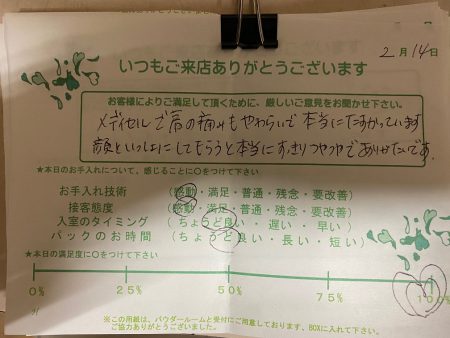 2月14日
いつもご来店ありがとうございます
お客様によりご満足して頂くために、厳しいご意見をお聞かせ下さい。
メディセルで肩の痛みもやわらいで本当にたすかっています
顔といっしょにしてもらうと本当にすっきりつやつやでありがたいです。
★本日のお手入れについて、感じることに○をつけて下さい
お手入れ技術 (感動・満足・普通・残念・要改善)
接客態度 (感動・満足・普通・残念・要改善)
入室のタイミング (ちょうど良い・遅い・早い)
パックのお時間 (ちょうど良い・長い・短い)
★本日の満足度に○をつけて下さい
0% 25% 50% 75% 100%
※この用紙は、パウダールームと受付にご用意しております、BOXに入れて下さい。
ご協力ありがとうございました。